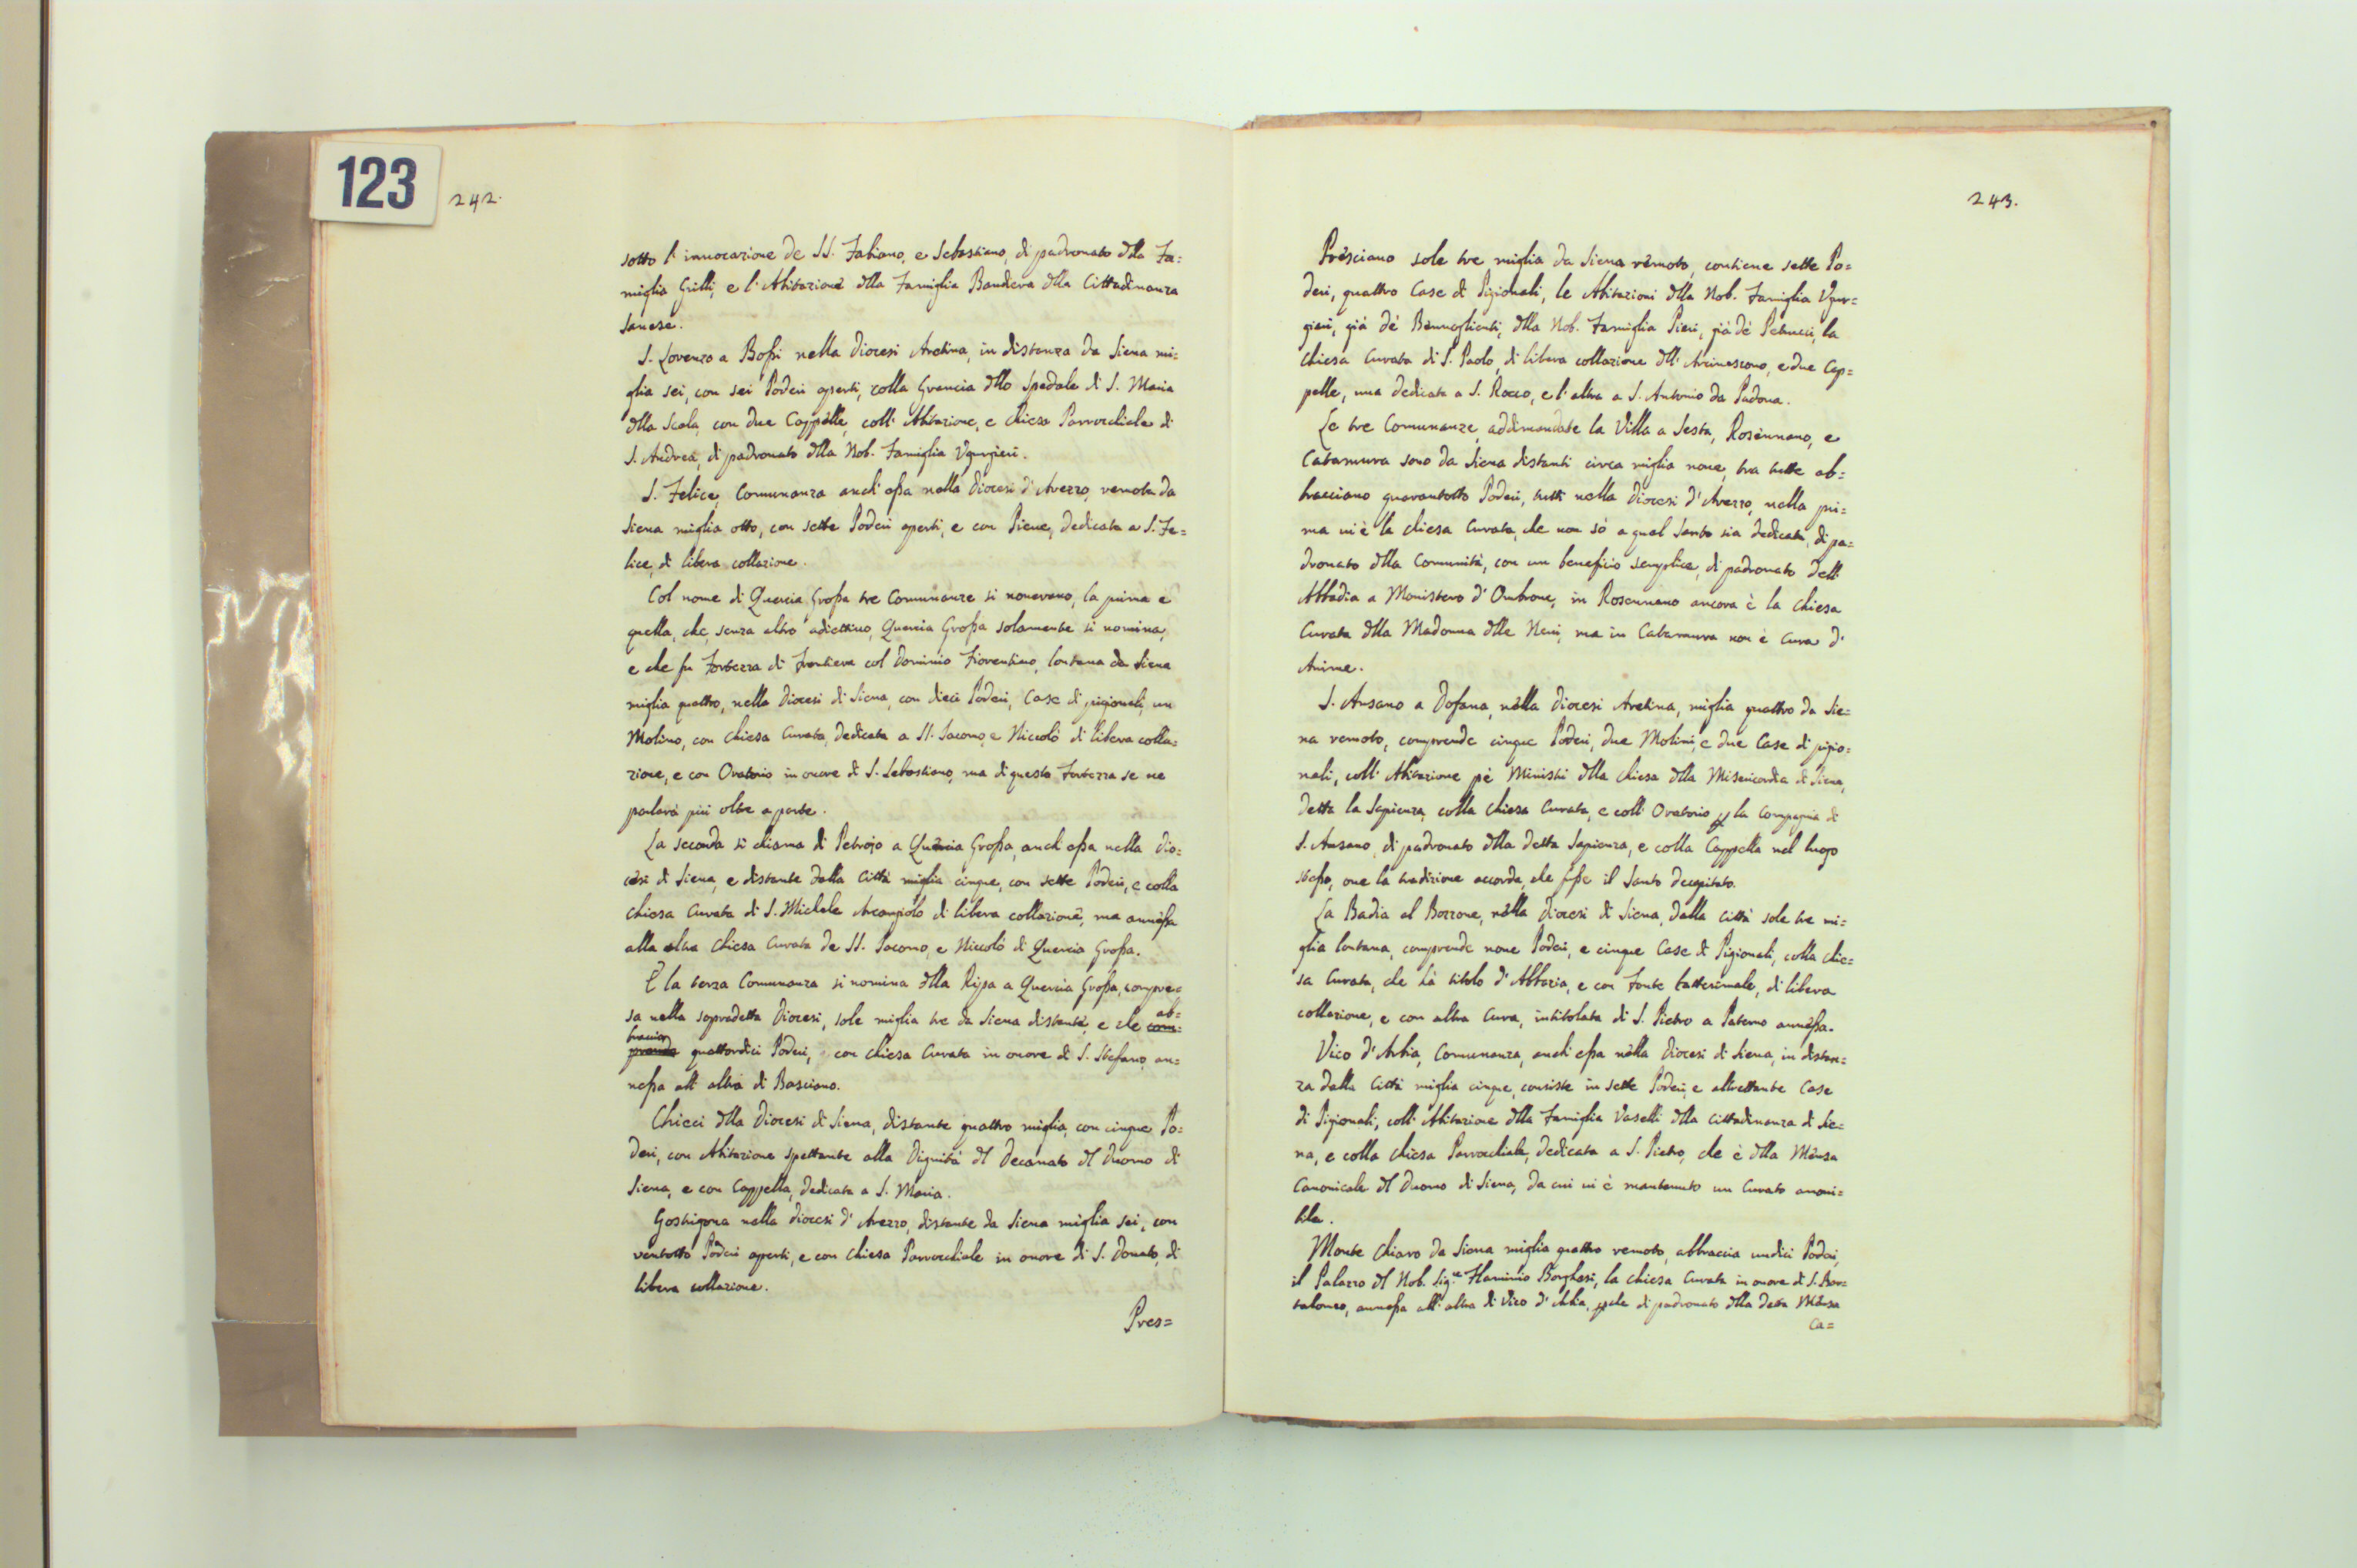 123
242.
sotto l'innocazione de SS. Fabiano, e Sebastiano, di padronato dlla Fa=
miglia Grilli, e l'Abitazione dlla Famiglia Bandiera dlla Cittadinanza
sanese.
S. Lorenzo a Bossi nella Diocesi Aretina, in distanza da Siena mi=
glia sei, con sei Poderi aperti, colla Grancia dllo Spedale di S. Maria
dlla Scala, con due Cappelle, coll'Abitazione, e Chiesa Parrocchiale di
S. Andrea, di padronato dlla Nob. Famiglia Vgurgieri.
S. Felice, Comunanza anch'essa nella Diocesi d'Arezzo, remota da
Siena miglia otto, con sette Poderi aperti, e con Pieve, dedicata a S. Fe=
lice, di libera collazione.
Col nome di Quercia Grossa tre Comunanze si nouerano, la prima e
quella, che, senza altro adiettiuo, Quercia Grossa solamente si nomina,
e che fu Fortezza di frontiera col Dominio Fiorentino, lontana da Siena
miglia quattro, nella Diocesi di Siena, con dieci Poderi, Case di pigionali, un
Molino, con Chiesa Curata, dedicata a SS. Jacomo, e Niccolò di libera colla=
zione, e con Oratorio in onore di S. Sebastiano, ma di questa Fortezza se ne
parlarà più oltre a parte.
La seconda si chiama di Petrojo a Quercia Grossa, anch'essa nella Dio=
cesi di Siena, e distante dalla Città miglia cinque, con sette Poderi, e colla
Chiesa Curata di S. Michele Arcangiolo di libera collazione, ma annessa
alla altra Chiesa Curata de SS. Jacomo, e Niccolò di Quercia Grossa.
E la terza Comunanza si nomina dlla Ripa a Quercia Grossa, compre=
sa nella sopradetta Diocesi, sole miglia tre da Siena distante, e che com= ab=
prende braccia quattordici Poderi, con Chiesa Curata in onore di S. Stefano, an=
nessa all'altra di Basciano.
Chieci dlla Diocesi di Siena, distante quattro miglia, con cinque Po=
deri, con Abitazione spettante alla Dignità dl Decanato dl Duomo di
Siena, e con Cappella, dedicata a S. Maria.
Gostigona nella Diocesi d'Arezzo, distante da Siena miglia sei, con
ventotto Poderi aperti, e con Chiesa Parrocchiale in onore di S. Donato, di
libera collazione.
Pres=
243.
Presciano sole tre miglia da Siena remoto, contiene sette Po=
deri, quattro Case di Pigionali, le Abitazioni dlla Nob. Famiglia Vgur=
gieri, già de Benuoglienti, dlla Nob. Famiglia Pieri, già de Petrucci, la
Chiesa Curata di S. Paolo, di libera collazione dll'Arciuescouo, e due Cap=
pelle, una dedicata a S. Rocco, e l'altra a S. Antonio da Padoua.
Le tre Comunanze, addimandate la Villa a Sesta, Rosennano, e
Cataruura sono da Siena distanti circa miglia noue, tra tutte ab=
bracciano quarantotto Poderi, tutti nella Diocesi d'Arezzo, nella pri=
ma ui è la Chiesa Curata, che non sò a qual Santo sia dedicata, di pa=
dronato dlla Comunità, con un beneficio semplice, di padronato dell'
Abbadia a Monistero d'Ombrone, in Rosennano ancora è la Chiesa
Curata dlla Madonna dlle Neui, ma in Cataruura non è Cura d'
Anime.
S. Ansano a Dofana, nella Diocesi Aretina, miglia quattro da Sie=
na remoto, comprende cinque Poderi, due Molini, e due Case di pigio=
nali, coll'Abitazione pe Ministri dlla Chiesa dlla Misericordia di Siena,
detta la Sapienza, colla Chiesa Curata, e coll'Oratorio p la Compagnia di
S. Ansano, di padronato dlla detta Sapienza, e colla Cappella nel luogo
stesso, oue la tradizione accorda, che fusse il Santo decapitato.
La Badia al Bozzone, nella Diocesi di Siena, dalla Città sole tre mi=
glia lontana, comprende noue Poderi, e cinque Case di Pigionali, colla Chie=
sa Curata, che hà titolo d'Abbazia, e con Fonte battesimale, di libera
collazione, e con altra Cura, intitolata di S. Pietro a Paterno annessa.
Vico d'Arbia, Comunanza, anch'essa nella Diocesi di Siena, in distan=
za dalla Città miglia cinque, consiste in sette Poderi, e altrettante Case
di Pigionali, coll'Abitazione dlla Famiglia Vaselli dlla Cittadinanza di Sie=
na, e colla Chiesa Parrocchiale, dedicata a S. Pietro, che è dlla Mensa
Canonicale dl Duomo di Siena, da cui ui è mantenuto un Curato amoui=
bile.
Monte Chiaro da Siena miglia quattro remoto, abbraccia undici Poderi,
il Palazzo dl Nob. Sig.re Flaminio Borghesi, la Chiesa Curata in onore di S. Bar=
talomeo, annessa all'altra di Vico d'Arbia, p che di padronato dlla detta Mensa
Ca=